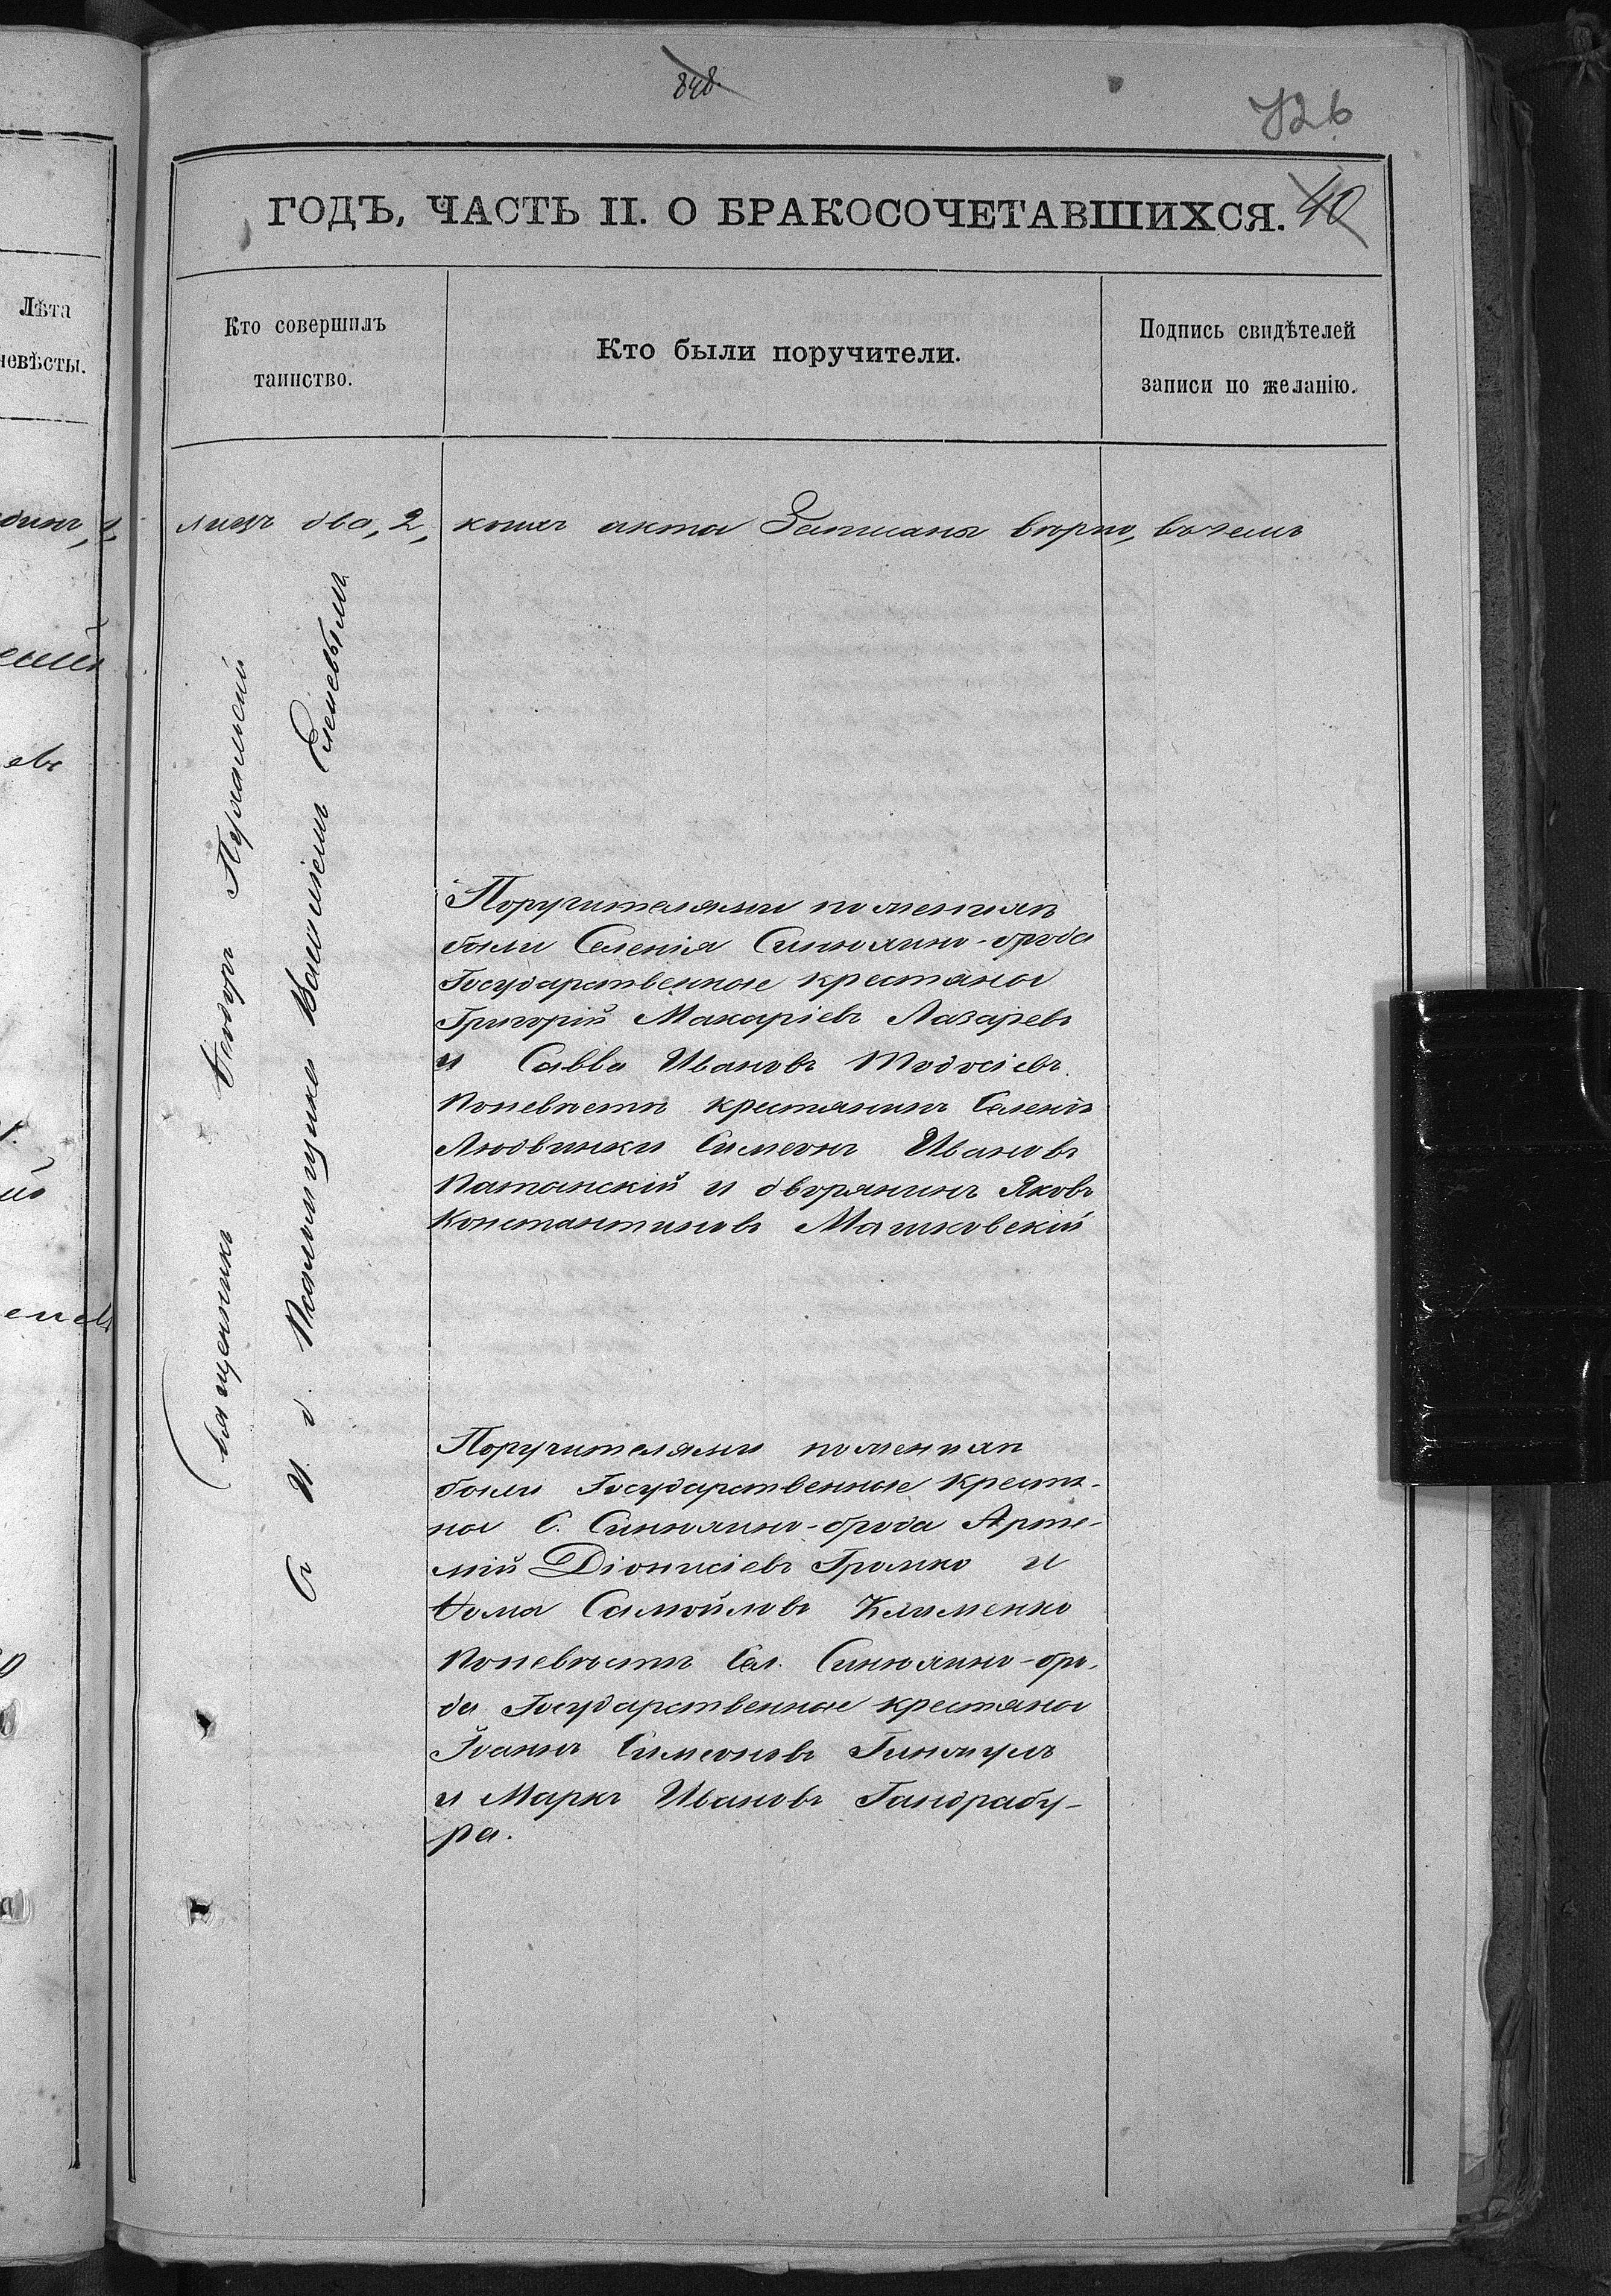 848.
726
ГОДЪ, ЧАСТЬ II. О БРАКОСОЧЕТАВШИХСЯ. 40
Лѣта
невѣсты.
Кто совершилъ
таинство.
Кто были поручители.
Подпись свидѣтелей
записи по желанію.
лицъ два, 2, коихъ акта Записаны вѣрно, въ чемъ
Священникъ Ѳеодоръ
С И. д. Псаломщика Василіемъ
Поручителями по женихѣ
были Селенія Синюхино-брода
Государственные крестяны
Григорій Макаріевъ Лазаревъ
и Савва Ивановъ Тодосіевъ.
По невѣстѣ крестянинъ Селенія
Людвинки Симеонъ Ивановъ
Патанскій и дворянинъ Яковъ
Константиновъ Машковскій
Поручителями по женихѣ
были Государственные крестя-
ны С. Синюхино-брода Арте-
мій Діонисіевъ Громко и
Ѳома Самойловъ Клименко
По невѣстѣ Сел. Синюхино-бро-
да Государственные крестяны
Іоаннъ Симеоновъ Гинкулъ
и Маркъ Ивановъ Гандрабу-
ра.